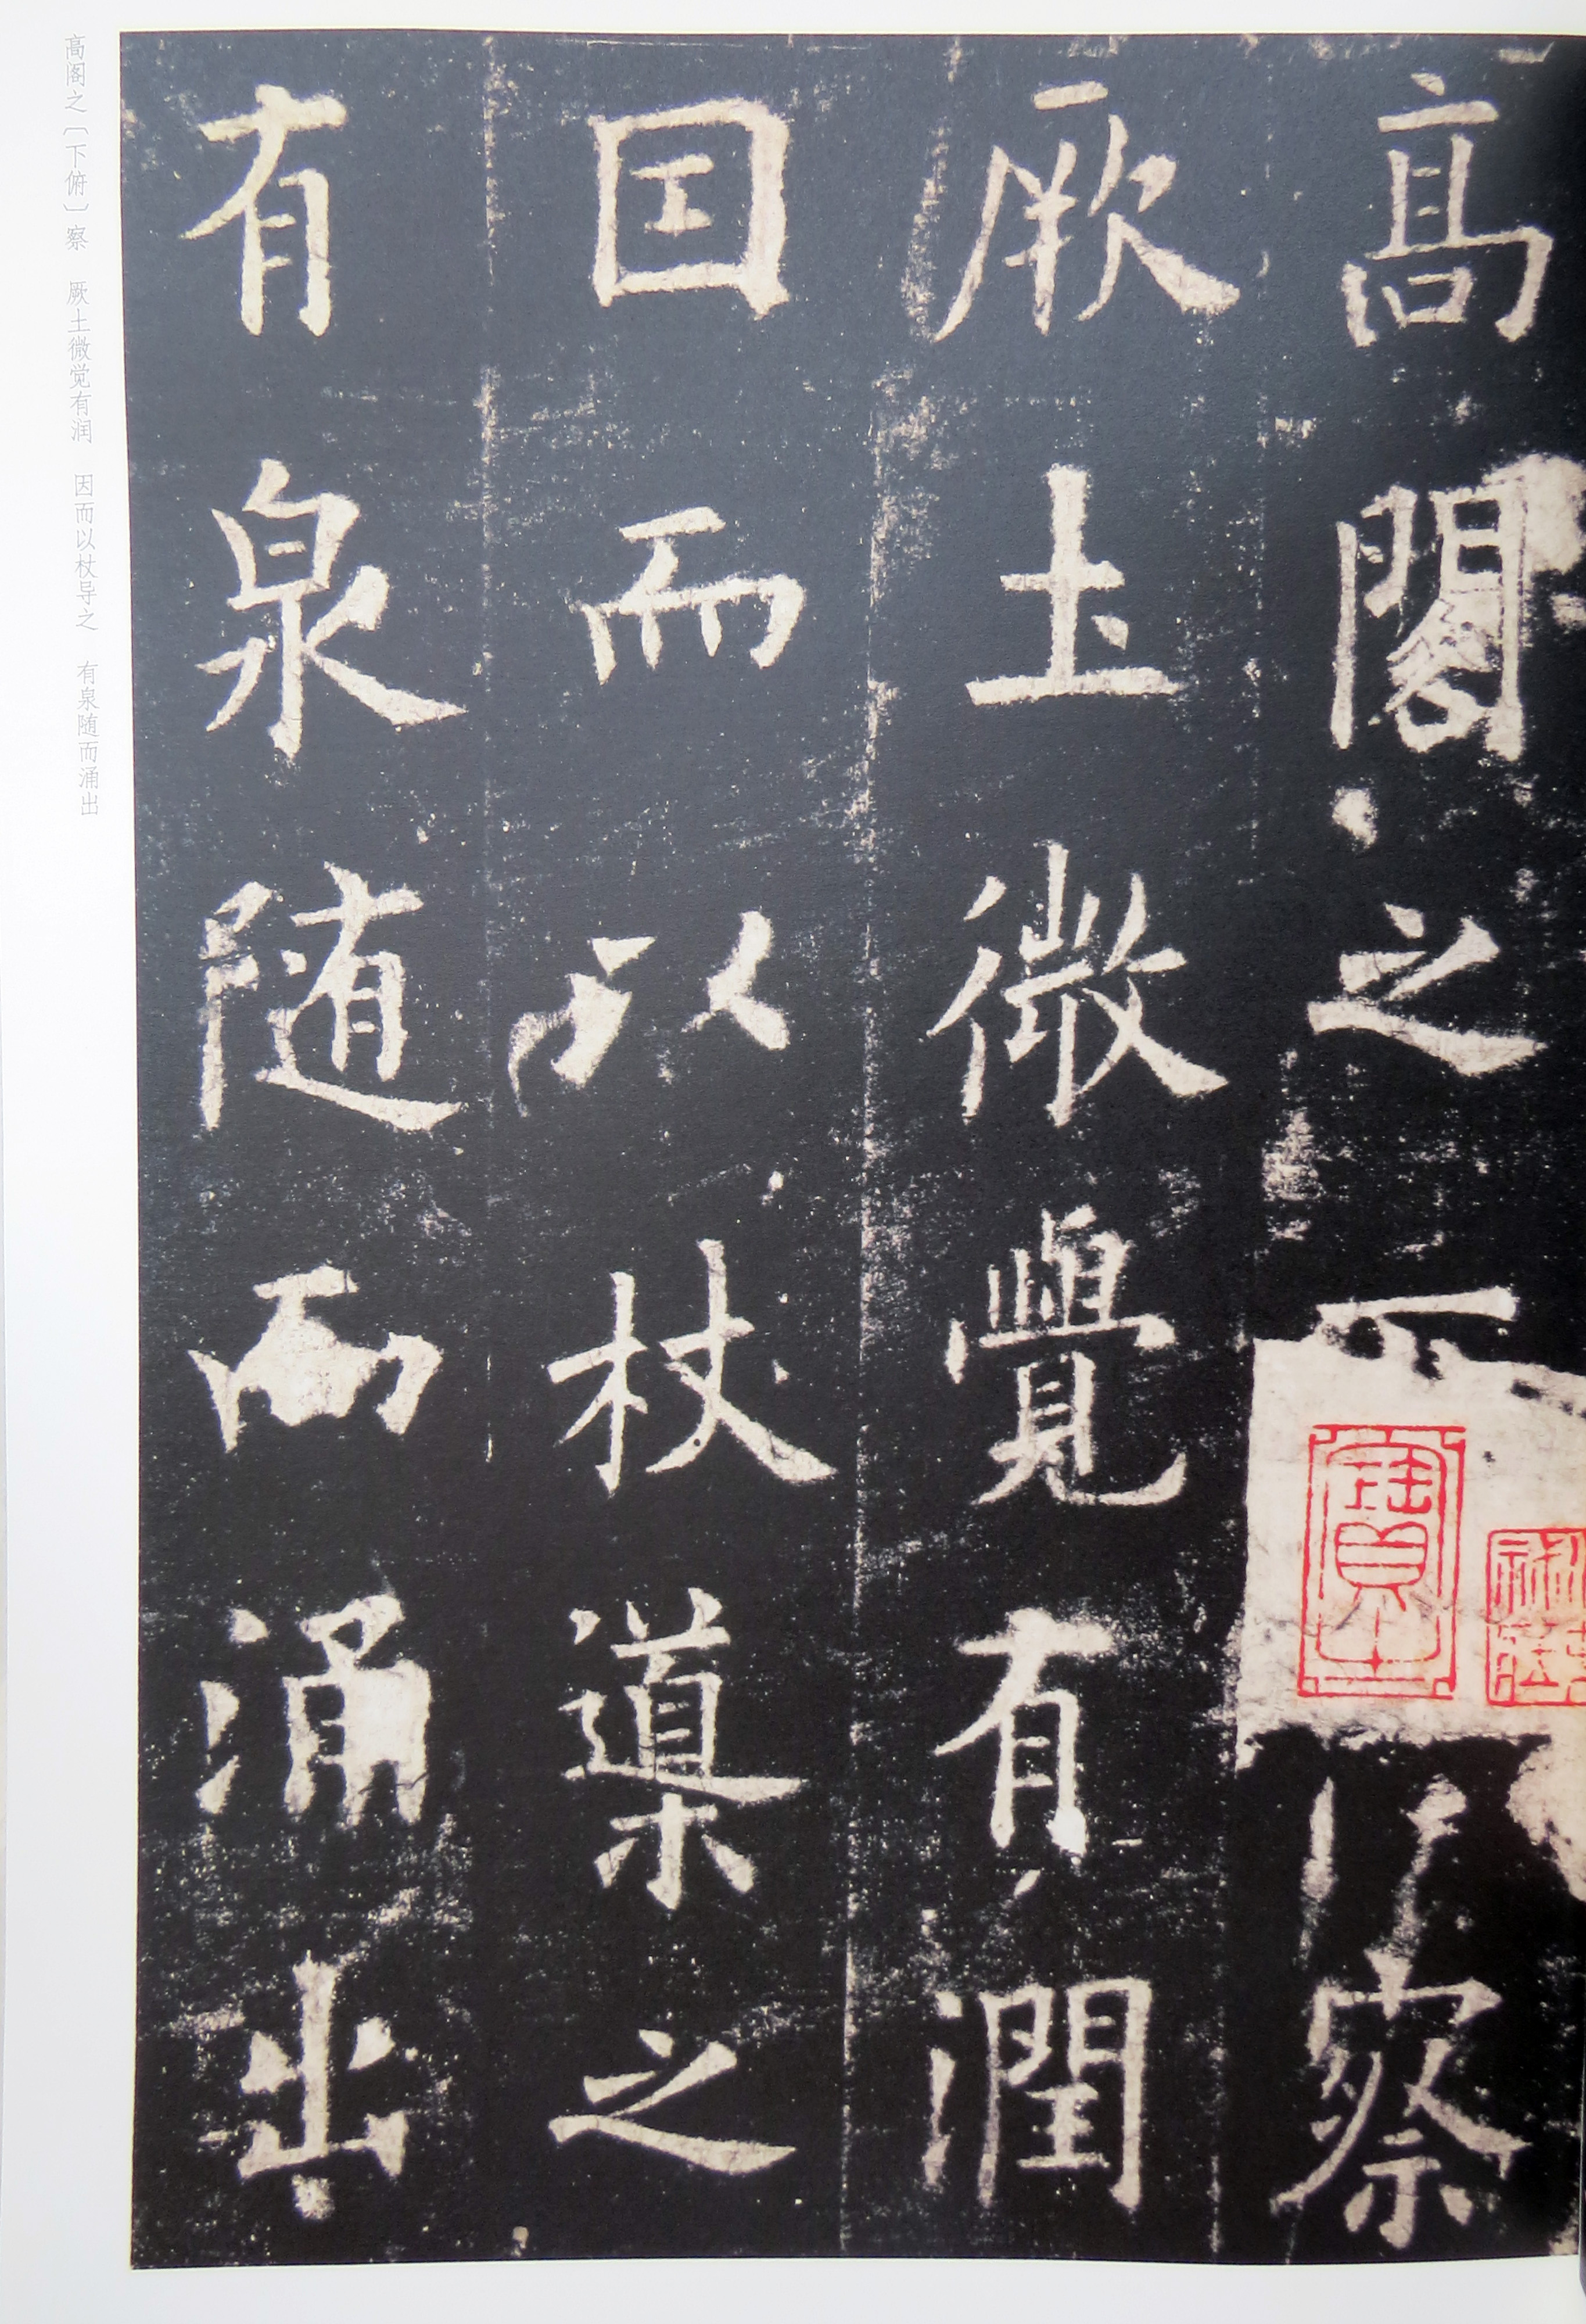 高閣之下俯察
厥土微覺有潤
因而以杖導之
有泉随而涌出
高阁之〔下俯〕察 厥土微觉有润 因而以杖导之 有泉随而涌出